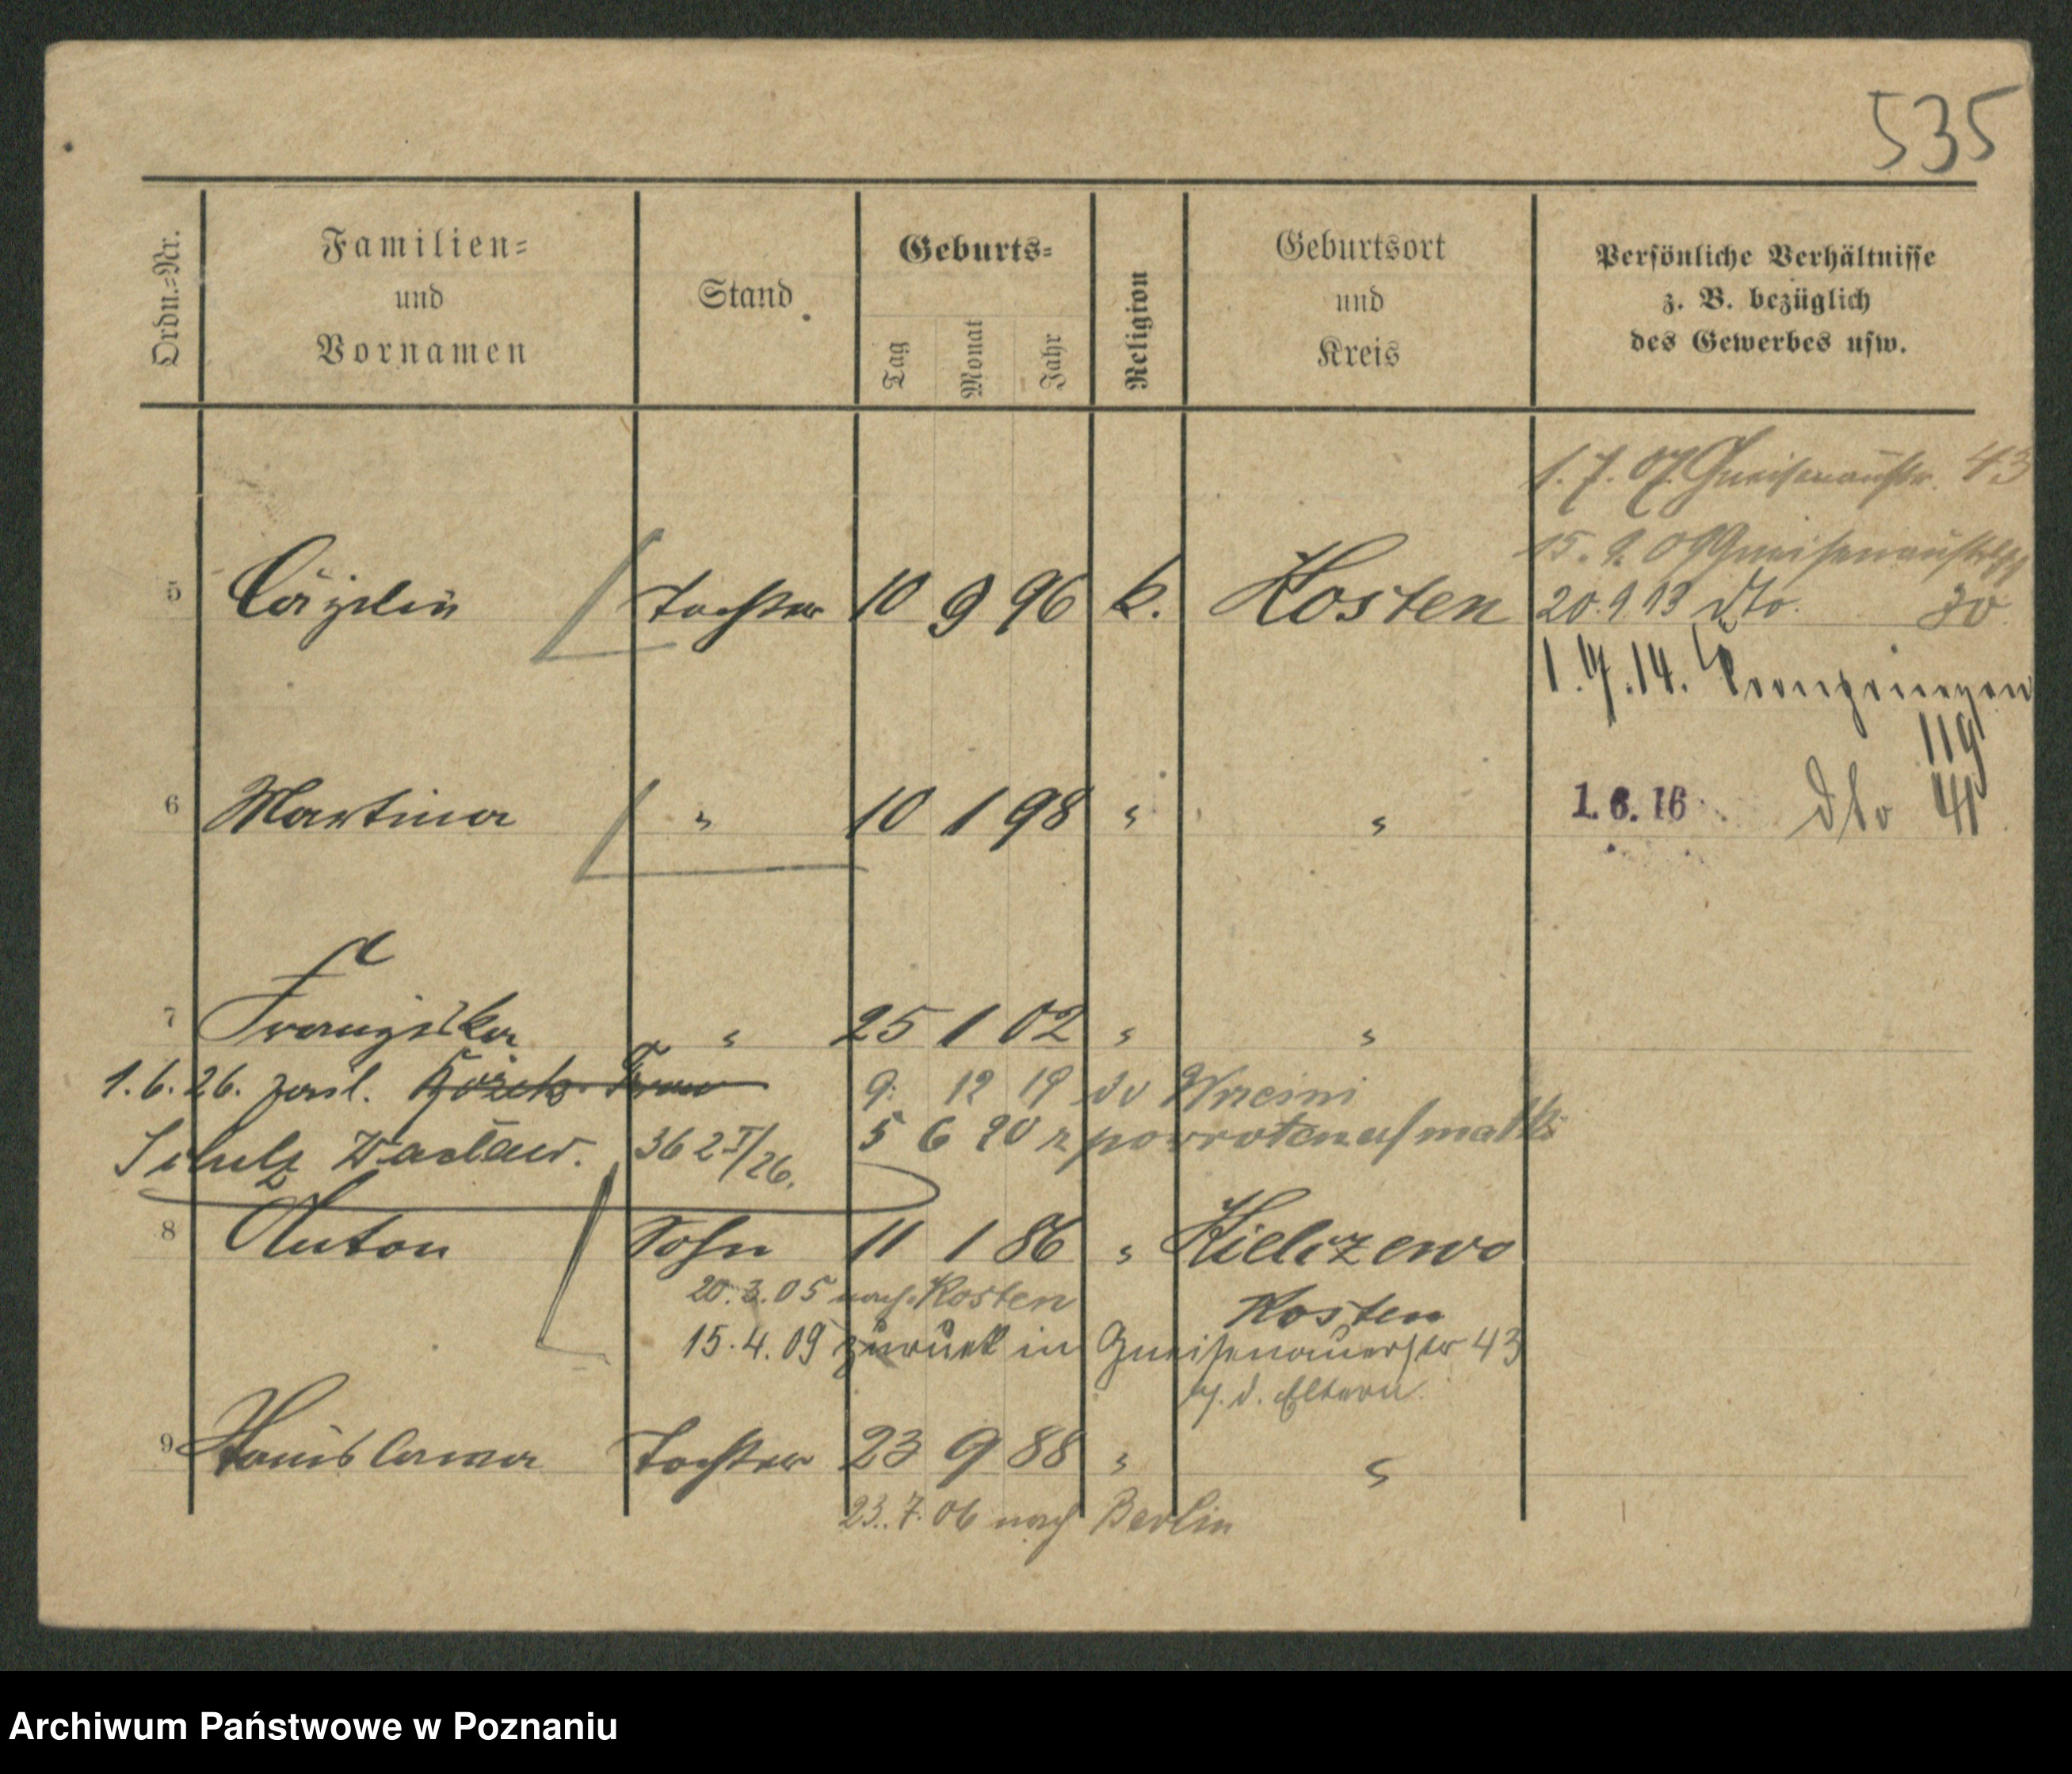 535
Ordn.-Nr.
Familien-
und
Vornamen
Stand
Geburts-
Tag
Monat
Jahr
Religion
Geburtsort
und
Kreis
Persönliche Verhältnisse
z. B. bezüglich
des Gewerbes usw.
1. 7. 07. Gneisenaustr. 43
15. 9. 09 Gneisenaustr.
5 Cäzilia Tochter 10 9 96 k. Kosten 20. 9. 13 dto. 30
1. 4. 14.
119
6 Martina " 10 1 98 " " 1. 6. 16 dto 41
7 Franziska " 25 1 02 " "
1. 6. 26. zasl. 9. 12 19 do Wrześni
Schulz Wacław. 36 2 I/26. 5 6 20 z powrotem u/ matki
8 Anton Sohn 11 1 86 " Kielczewo
20. 3. 05 nach Kosten Kosten
15. 4. 09 zurück in Gneisenauerstr 43
b/. d. Eltern.
9 Stanislawa Tochter 23 9 88 " "
23. 7. 06 nach Berlin
Archiwum Państwowe w Poznaniu